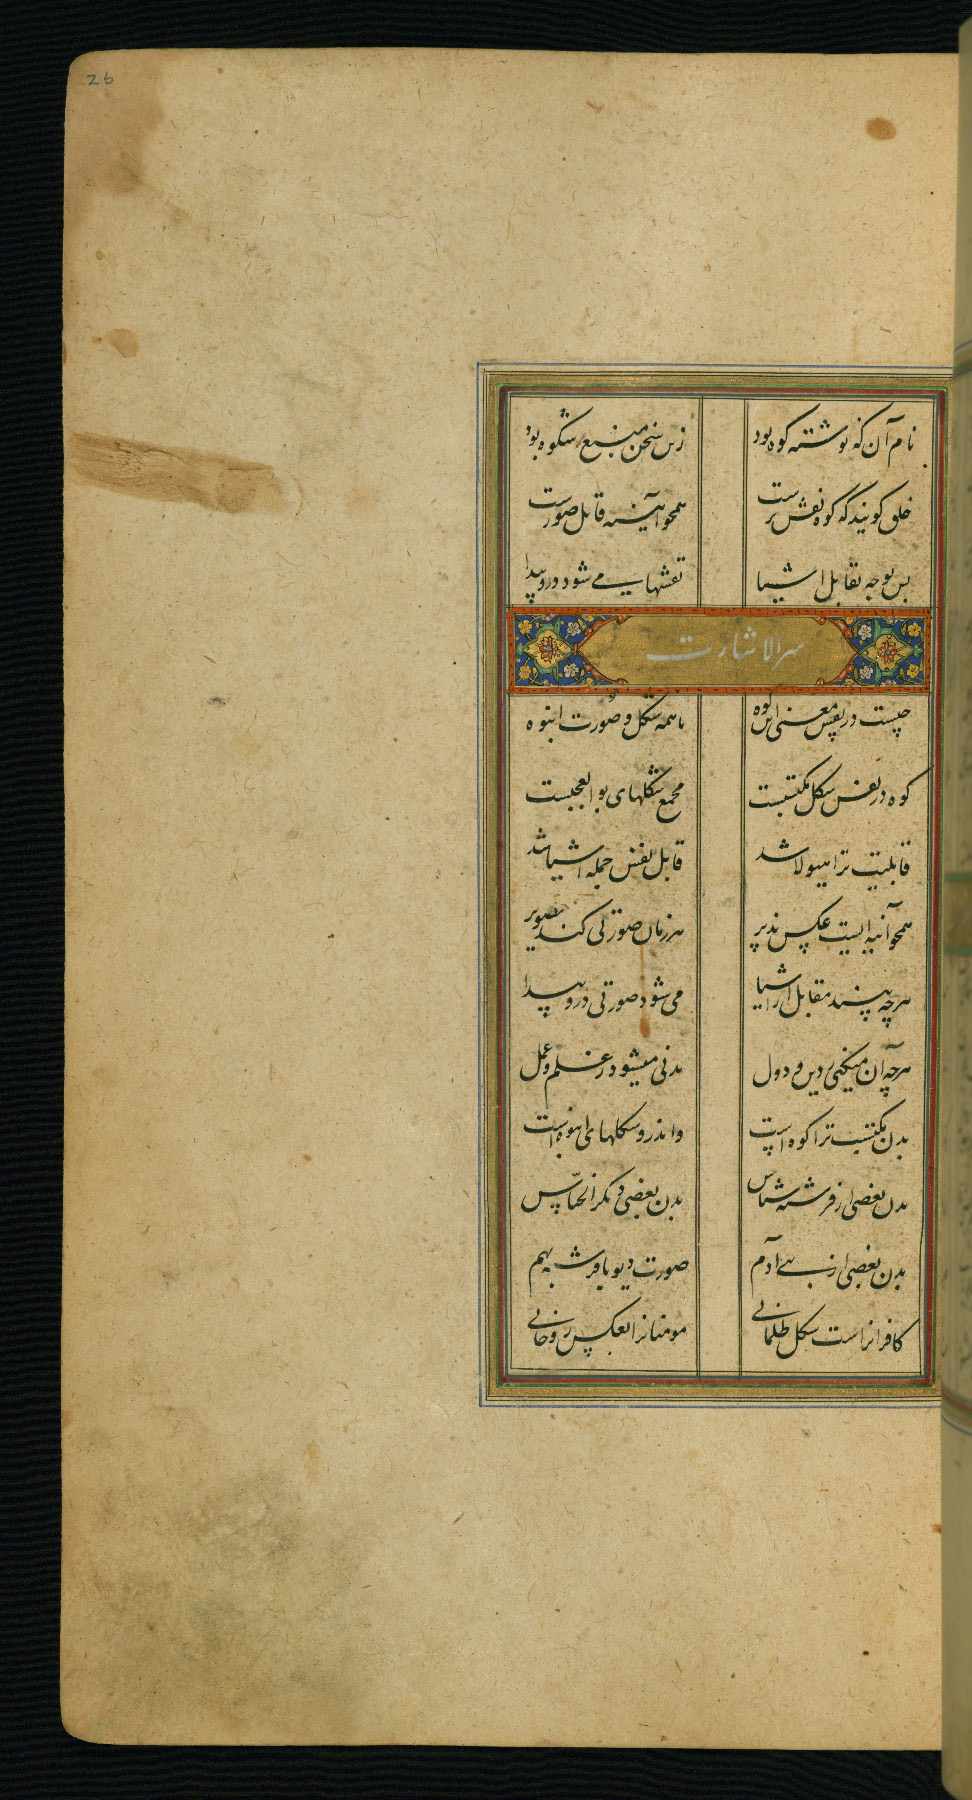 26
نام آن که نوشته کوه بود
زین سخن منبع شکوه بود
خلق گویند که کوه نقش پرست
همچو آینه قابل صورست
پس بوجه تقابل اشیا
نقشهایی می شود درو پیدا
سر الاشارت
چیست در نفس معنی این کوه
با همه شکل و صورت انبوه
کوه در نفس شکل مکتسبست
مجمع شکلهای بوالعجبست
قابلیت ترا هیولا شد
قابل نفس جمله اشیا شد
همچو آینه ایست عکس پذیر
هر زمان صورتی کند تصویر
هرچه بیند مقابل از اشیا
می شود صورتی درو پیدا
هرچه آن میکنی ز دین و دول
بدنی میشود ز علم و عمل
بدن مکتسب ترا کوه است
واندرو شکلهای انبوه است
بدن بعضی از فرشته شناس
بدن بعضی دگر از خناس
بدن بعضی از بنی آدم
صورت دیو با فرشته بهم
کافرانراست شکل ظلمانی
مومنانرا بعکس روحانی